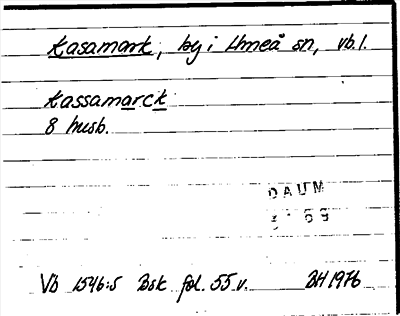 Kasamark, by i Umeå sn, vb.l.
Kassamarck
8 husb.
DAUM
Vb 1546:5 Bsk fol. 55 v. BH 1976